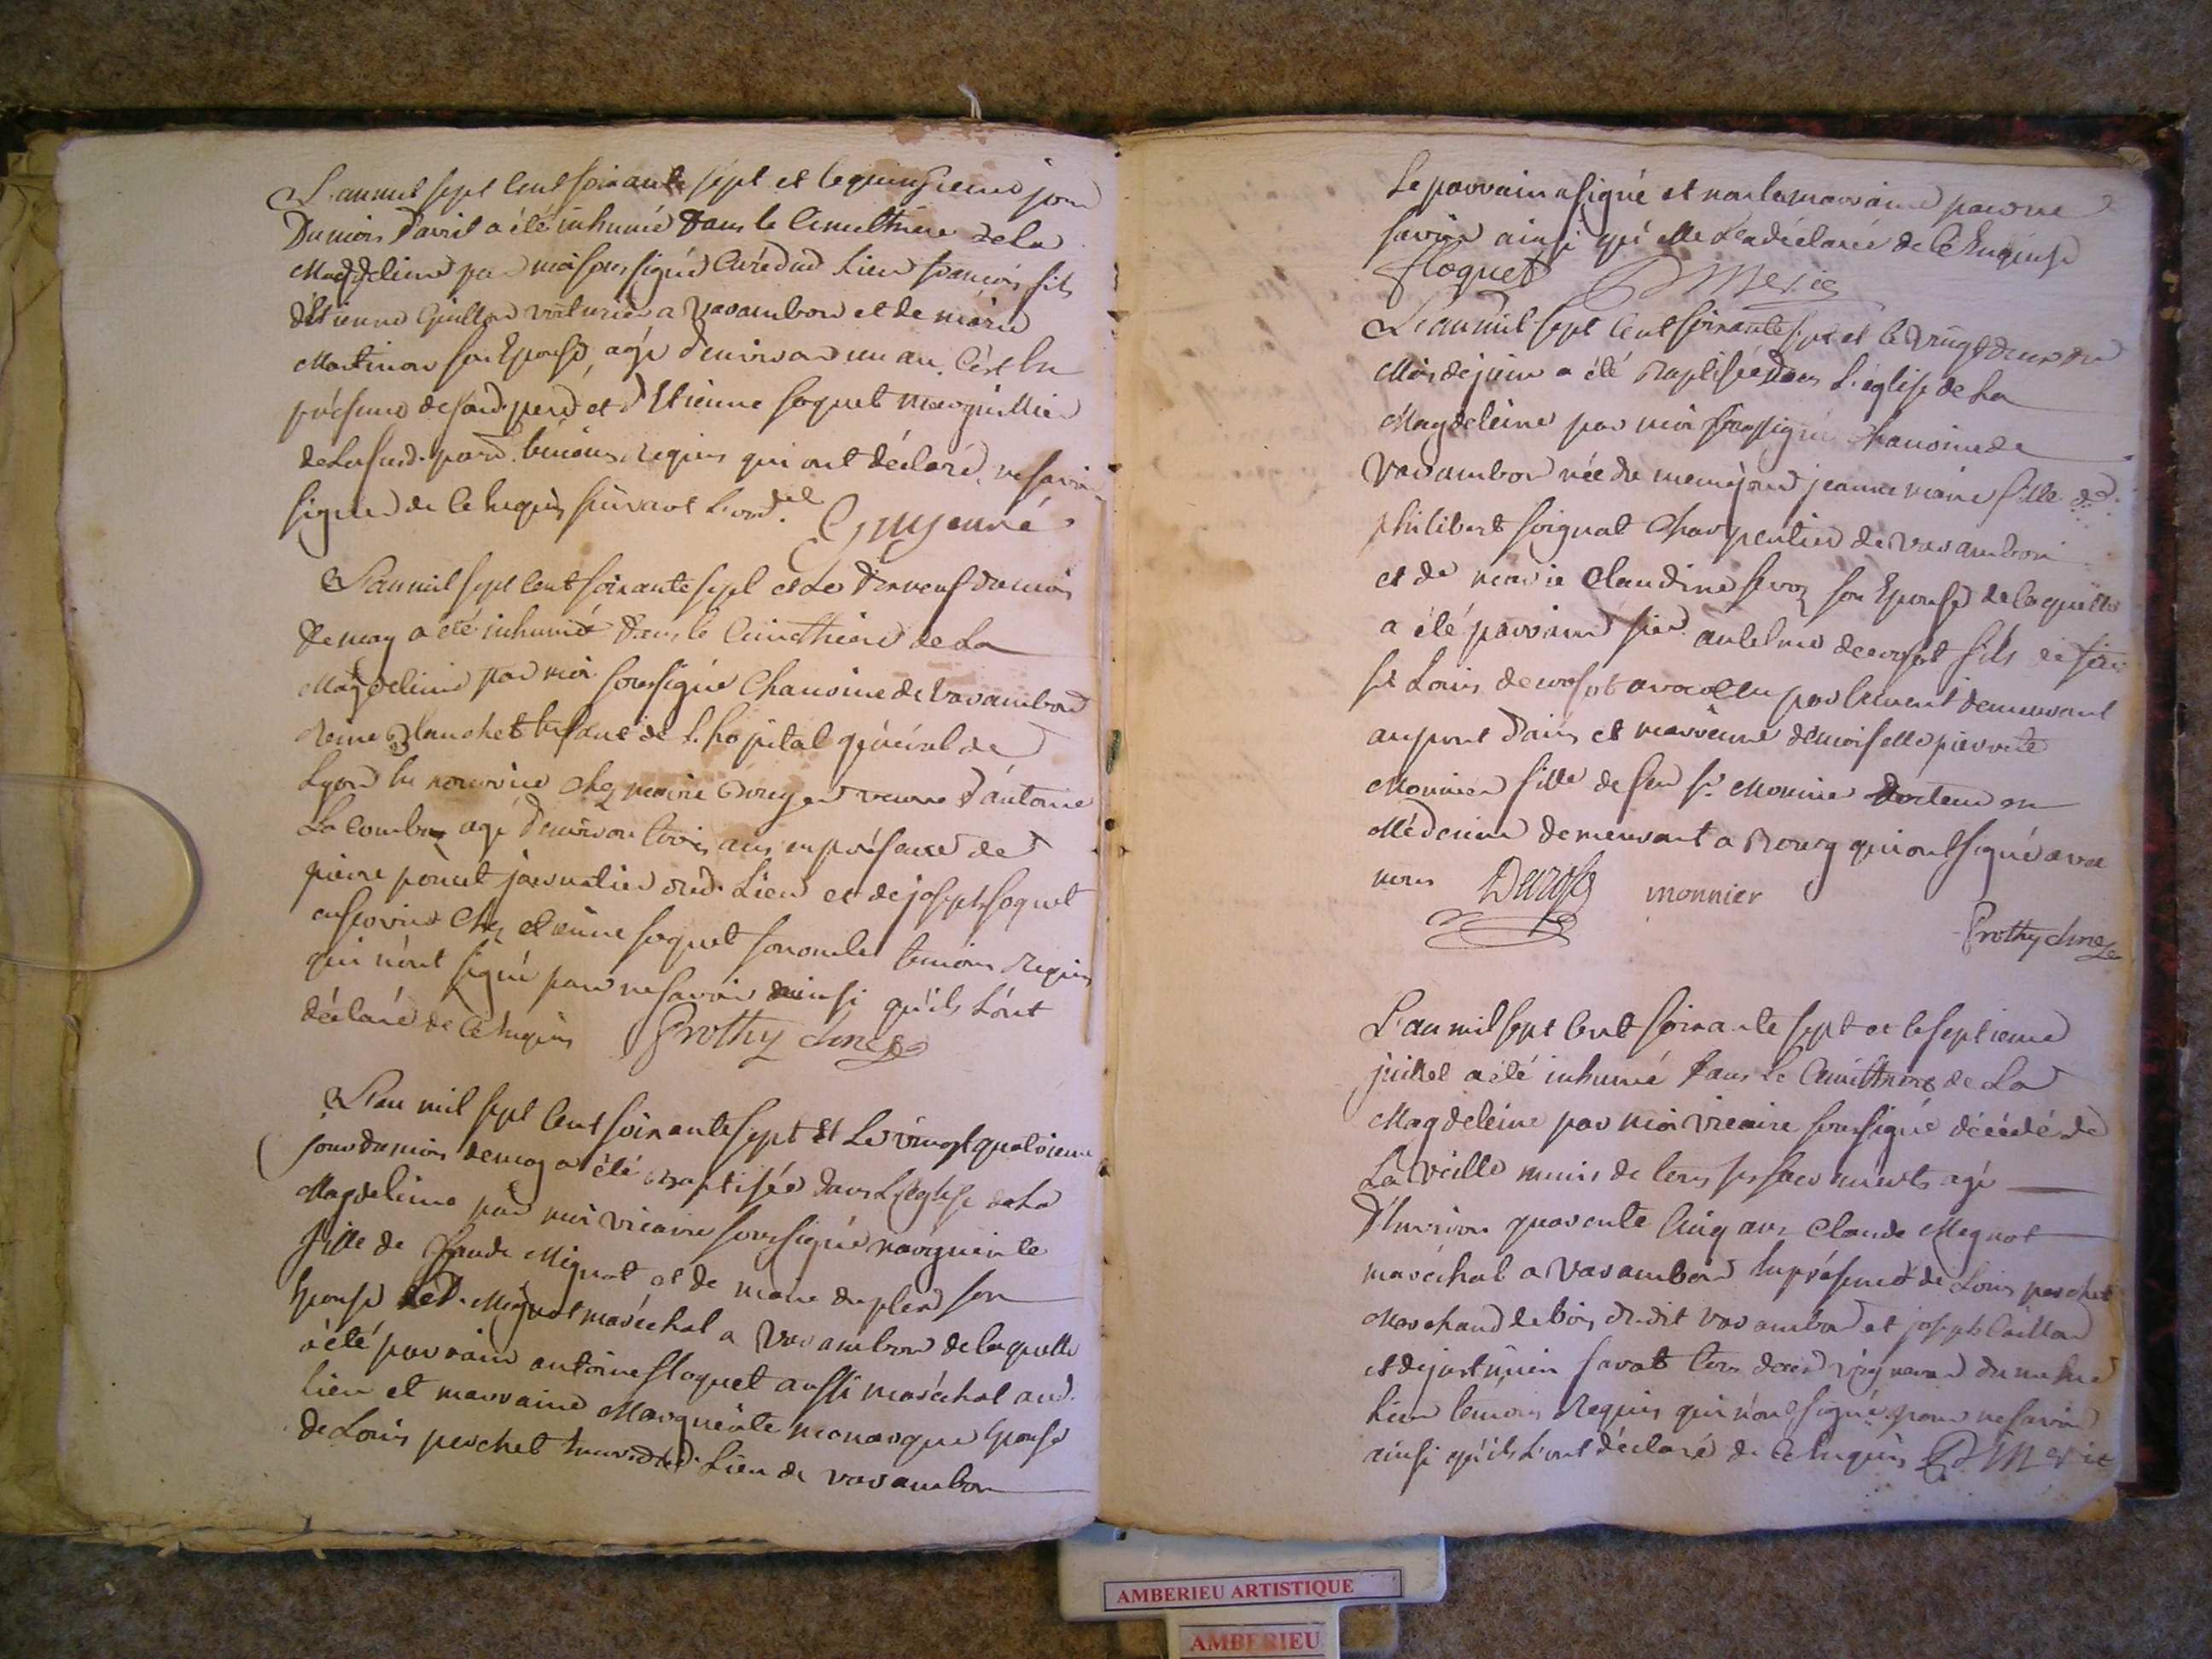 L'an mil sept cent soixante sept et le quinzieme jour
du mois d'avril a été inhumé dans le cimethiere de la
Magdeleine par moi soussigné curé dud lieu françois fils
d'Etienne voiturier a Varambon et de marie
Martinon son Epouse, agé d'environ un an, en
présence de sond. pere et d'Etienne soquet marguillier
de lasusd. paroi. témoins requis qui ont déclaré ne savoir
signer de ce requis suivant l'ord.
L'an mil sept cent soixante sept et le dixneuf du mois
de may a été inhumé dans le cimethiere de la
Magdeleine par moi soussigné chanoine de Varambon
Reine Blanchet enfant de l'hopital général de
Lyon en nourrice chez marie veuve d'antoine
La combe agé d'environ trois ans en présence de
pierre poncet journalier dud. Lieu et de joseph soquet
en service chez etienne soquet son oncle témoins requis
qui n'ont signé pour ne savoir ainsi qu'ils l'ont
déclaré de ce requis Prothy chne
L'an mil sept cent soixante sept et le vingt quatrieme
jour du mois de may a été baptisée dans l'église de la
Magdeleine par moi vicaire soussigné marguerite
fille de Claude Mignot et de marie duplex son
Epouse led. Mignot maréchal a Varambon de laquelle
a été parrain antoine floquet aussi maréchal aud.
lieu et marraine Marguerite monarque Epouse
de Louis perchet dud. Lieu de varambon
Le parrain a signé et non la marraine pour ne
savoir ainsi qu'elle l'a déclarée de ce Enquise
floquet Merie
L'an mil sept cent soixante sept et le vingt deux du
Mois de juin a été Baptisée dans L'église de La
Magdeleine par moi soussigné chanoine de
Varambon née du meme jour jeanne marie fille de
philibert soignat charpentier de varambon
et de marie claudine sevoz son Epouse de laquelle
a été parrain sieur antelme fils de sieur
Louis avocat en parlement demeurant
au pont d'ain et marraine demoiselle pierrette
Monnier fille de feu sr. Monnier Docteur en
Médecine demeurant a Bourg qui ont signé avec
nous monnier
Prothy chne
L'an mil sept cent soixante sept et le septieme
juillet a été inhumé dans le cimethiere de La
Magdeleine par moi vicaire soussigné décédé de
La veille muni de tous ses sacrements agé
d'Environ quarente cinq ans Claude Mignot
maréchal a Varambon En présence de Louis perchet
Marchand de bois dudit varambon et joseph Caillon
et de just savat vigneron du meme
lieu temoins Requis qui n'ont signé pour ne savoir
ainsi qu'ils l'ont déclaré de ce Enquis Merie
AMBERIEU ARTISTIQUE
AMBERIEU